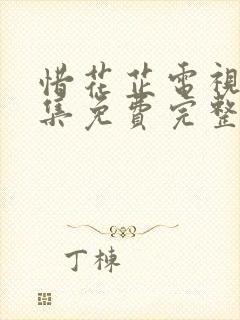 惜花芷電視
集免費完整
丁棟